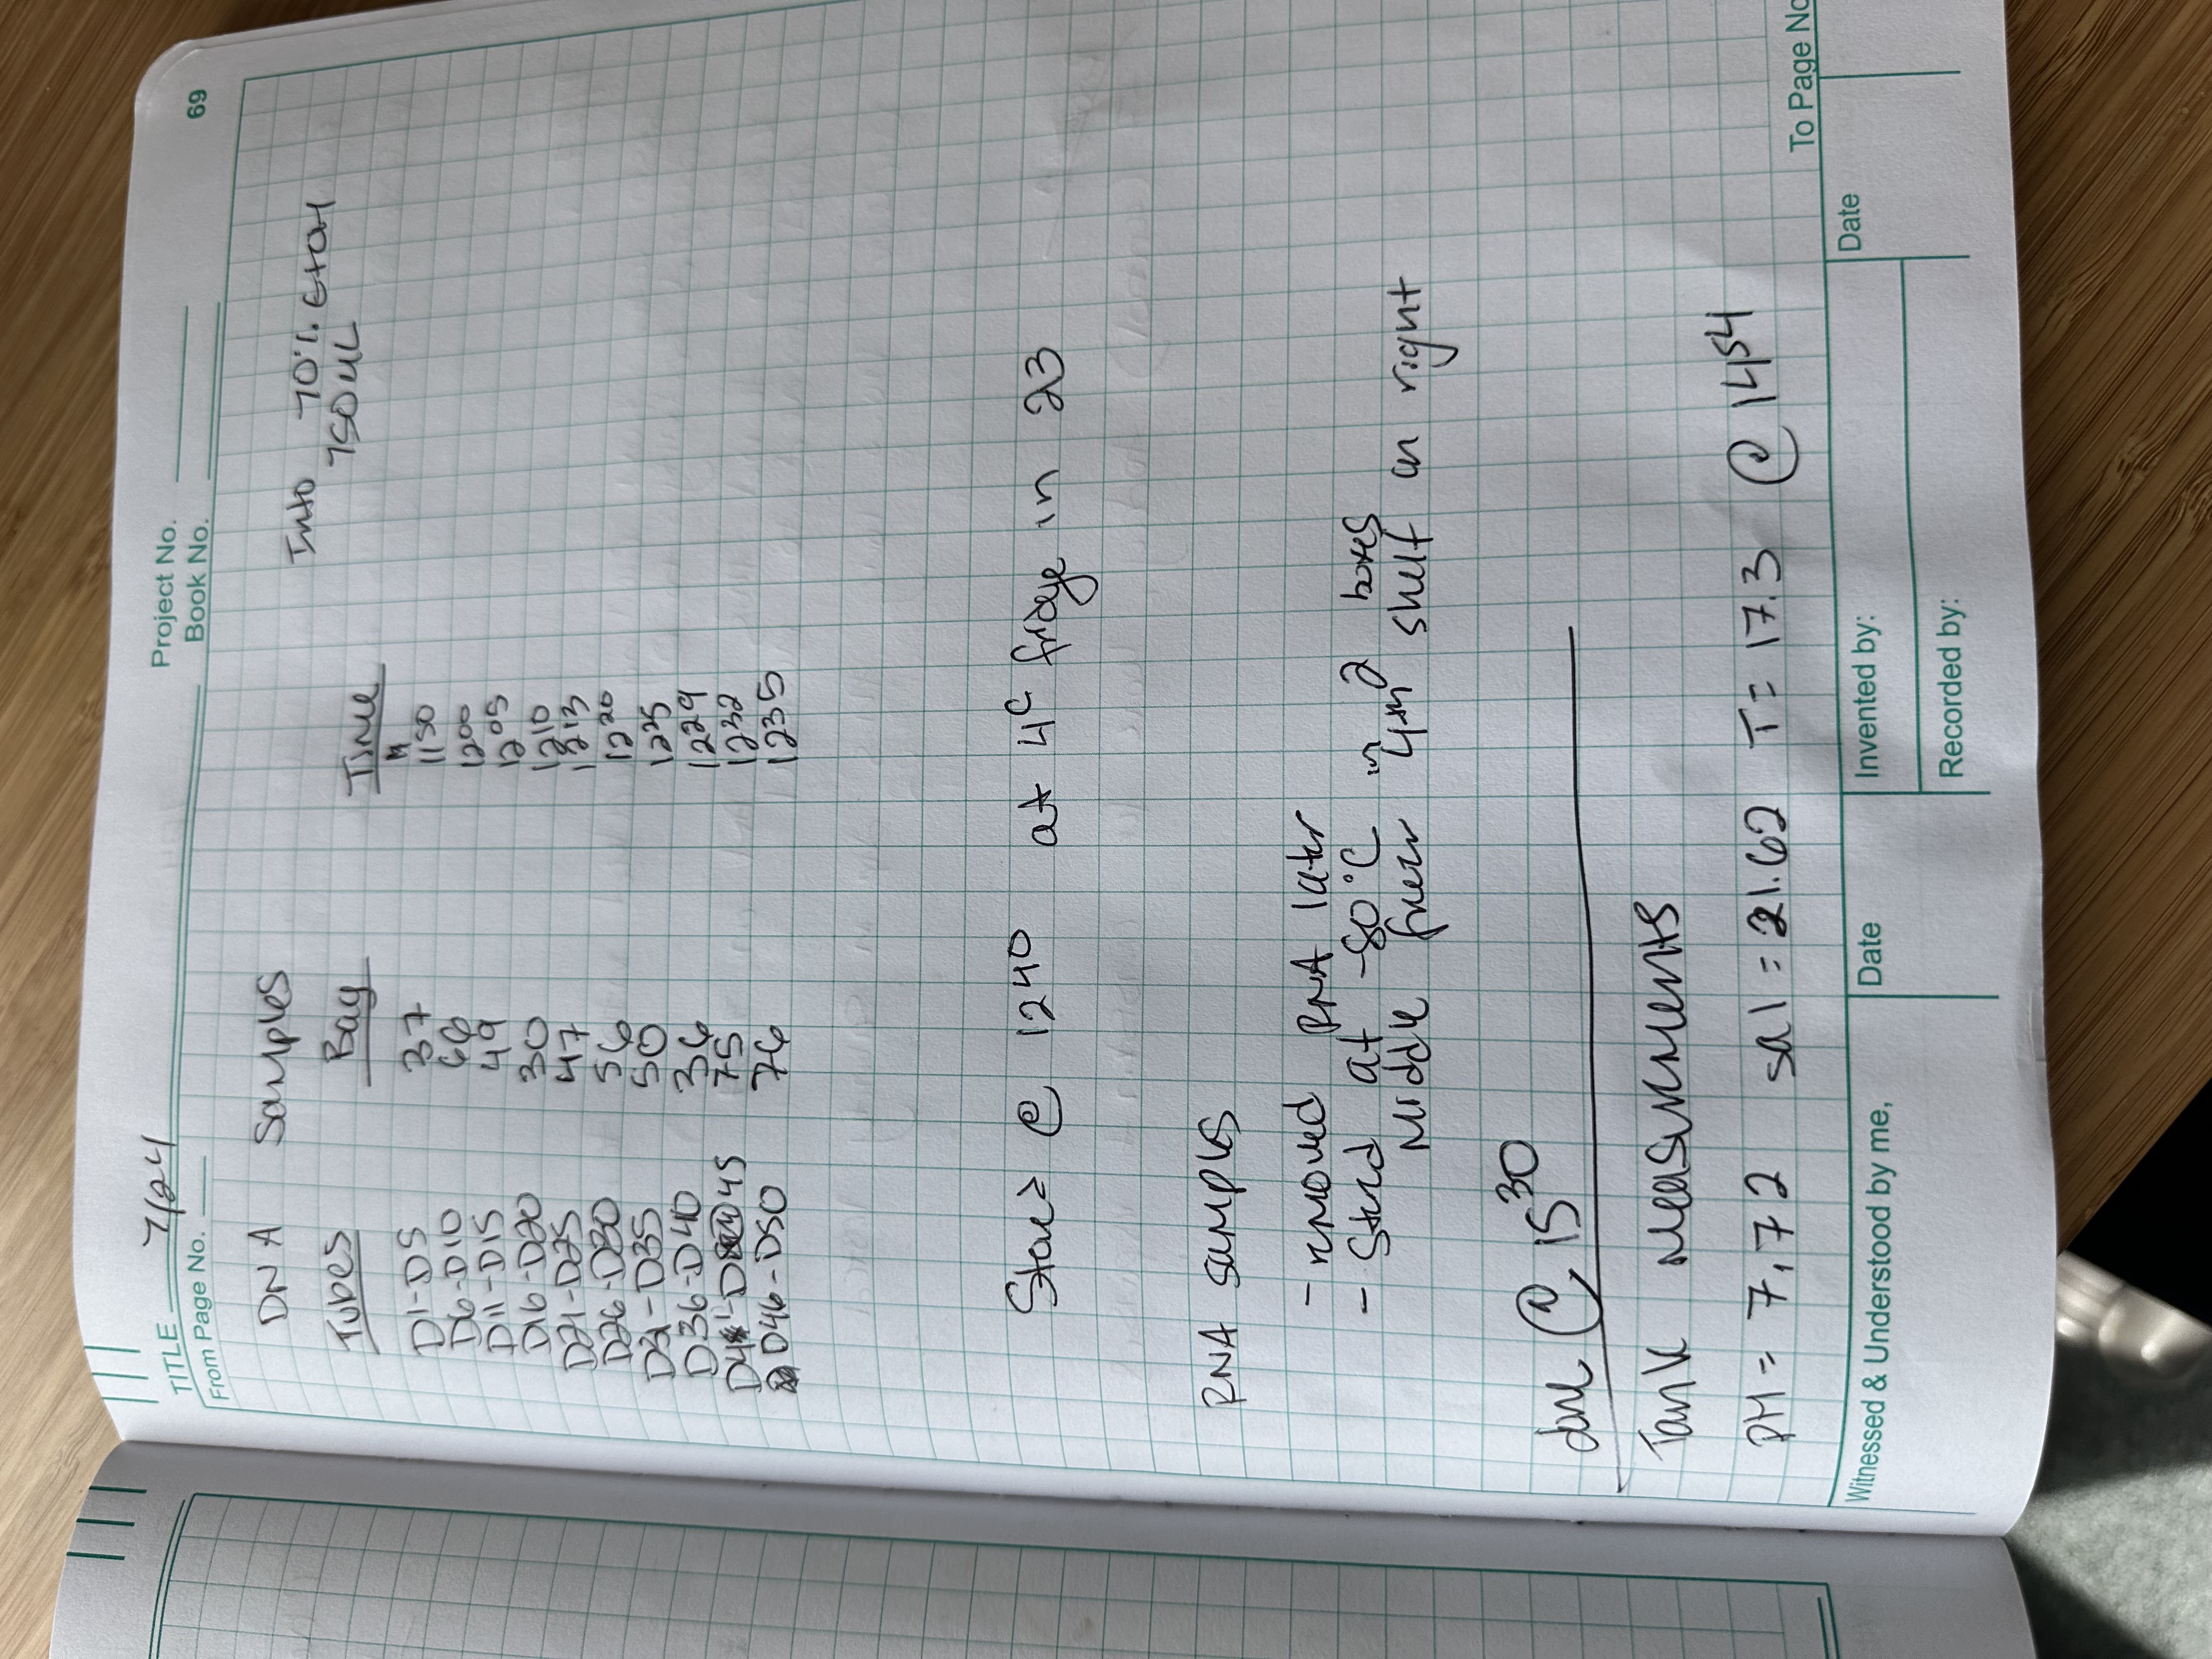 TITLE 7/24
Project No.
From Page No.
Book No.
69
DNA Samples
Into 70% EtOH
750 uL
Tubes Bag Time
D1-D5 37 1150
D6-D10 66 1200
D11-D15 49 1205
D16-D20 30 1210
D21-D25 47 1213
D26-D30 56 1220
D31-D35 50 1225
D36-D40 36 1229
D41-D45 75 1232
D46-D50 76 1235
@ 1240 at 4C fridge in 23
RNA samples
- removed RNA later
- Stord at -80°C in 2 boxes
Middle freezr 4th shelf on right
done @ 1530
Tank Measurments
PH = 7.72 sal = 21.62 T = 17.3 @ 1454
To Page No
Witnessed & Understood by me,
Date
Invented by:
Date
Recorded by: